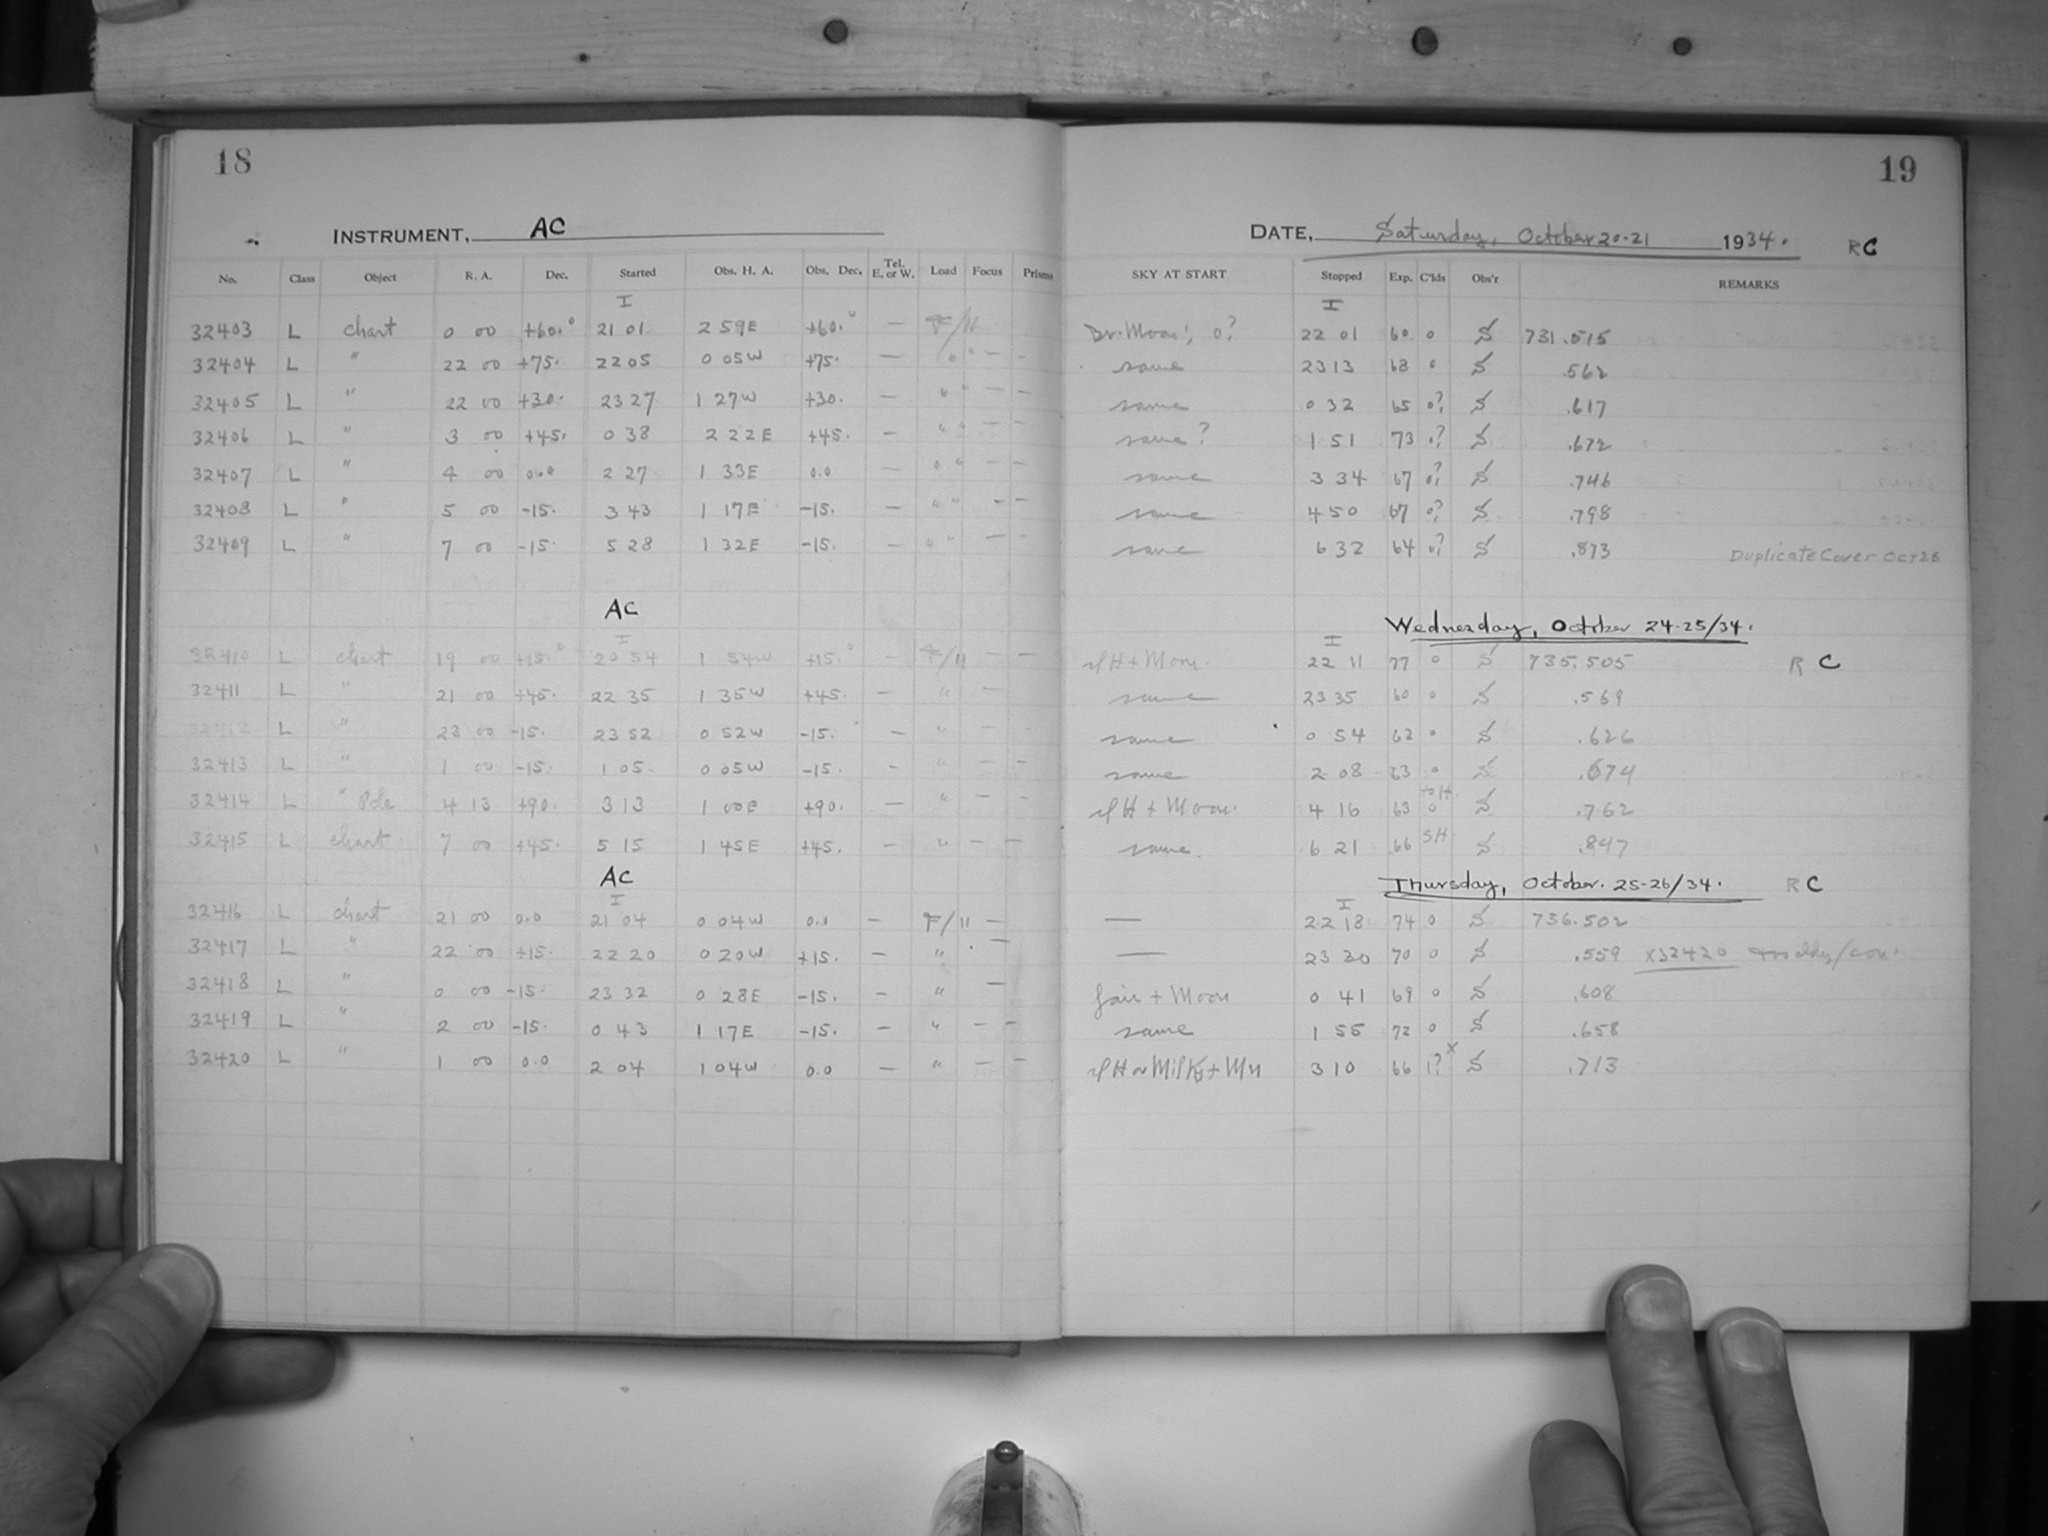 18
INSTRUMENT, AC
No. Class Object R. A. Dec. Started Obs. H. A. Obs. Dec. Tel. E. or W. Load Focus Prisms
I
32403 L chart 0 00 +60.° 21 01 2 59E +60.° — F/11
32404 L " 22 00 +75. 22 05 0 05W +75. — " " — -
32405 L " 22 00 +30. 23 27 1 27W +30. — " " — —
32406 L " 3 00 +45. 0 38 2 22E +45. — " " — —
32407 L " 4 00 0.0 2 27 1 33E 0.0 — " " — —
32408 L " 5 00 -15. 3 43 1 17E -15. — " " — —
32409 L " 7 00 -15. 5 28 1 32E -15. — " " — -
AC
I
32410 L chart 19 00 +15.° 20 54 1 54W +15.° — F/11 — —
32411 L " 21 00 +45. 22 35 1 35W +45. — " —
32412 L " 23 00 -15. 23 52 0 52W -15. — " — -
32413 L " 1 00 -15. 1 05 0 05W -15. — " — —
32414 L " Pole 4 13 +90. 3 13 1 00E +90. — " — —
32415 L chart 7 00 +45. 5 15 1 45E +45. — " — —
AC
I
32416 L chart 21 00 0.0 21 04 0 04W 0.0 — F/11 —
32417 L " 22 00 +15. 22 20 0 20W +15. — " —
32418 L " 0 00 -15. 23 32 0 28E -15. — " —
32419 L " 2 00 -15. 0 43 1 17E -15. — " — —
32420 L " 1 00 0.0 2 04 1 04W 0.0 — " —
19
DATE, Saturday, October 20-21 1934. RC
SKY AT START Stopped Exp. C'lds Obs'r REMARKS
I
Br. Moon; 0? 22 01 60 0 S 731.515
same 23 13 68 0 S .562
same 0 32 65 0? S .617
same? 1 51 73 0? S .672
same 3 34 67 0? S .746
same 4 50 67 0? S .798
same 6 32 64 0? S .873 Duplicate Cover Oct 28
Wednesday, October 24-25/34.
I
H + Moon. 22 11 77 0 S 735.505 R C
same 23 35 60 0 S .569
same 0 54 62 0 S .626
same 2 08 63 0 S .674
H + Moon. 4 16 63 0 S .762
same. 6 21 66 SH S .847
Thursday, October. 25-26/34. RC
I
— 22 18 74 0 S 736.502
— 23 30 70 0 S .559 x32420
fair + Moon 0 41 69 0 S .608
same 1 55 72 0 S .658
H or Milky + Mn 3 10 66 1? x S .713